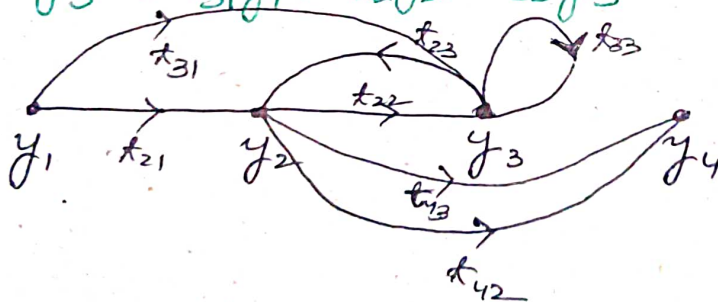 t23
t33
t31
t22
y1
t21
y2
y3
y4
t43
t42